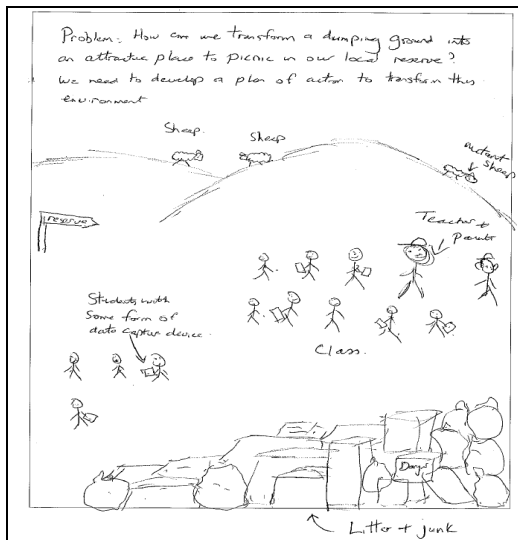 Problem: How can we transform a dumping ground into
an attractive place to picnic in our local reserve?
We need to develop a plan of action to transform this
environment
Sheep.
Sheep
mutant
sheep
reserve
Teacher +
Parent
Students with
Some form of
data capture device.
Class.
Danger
Litter + junk